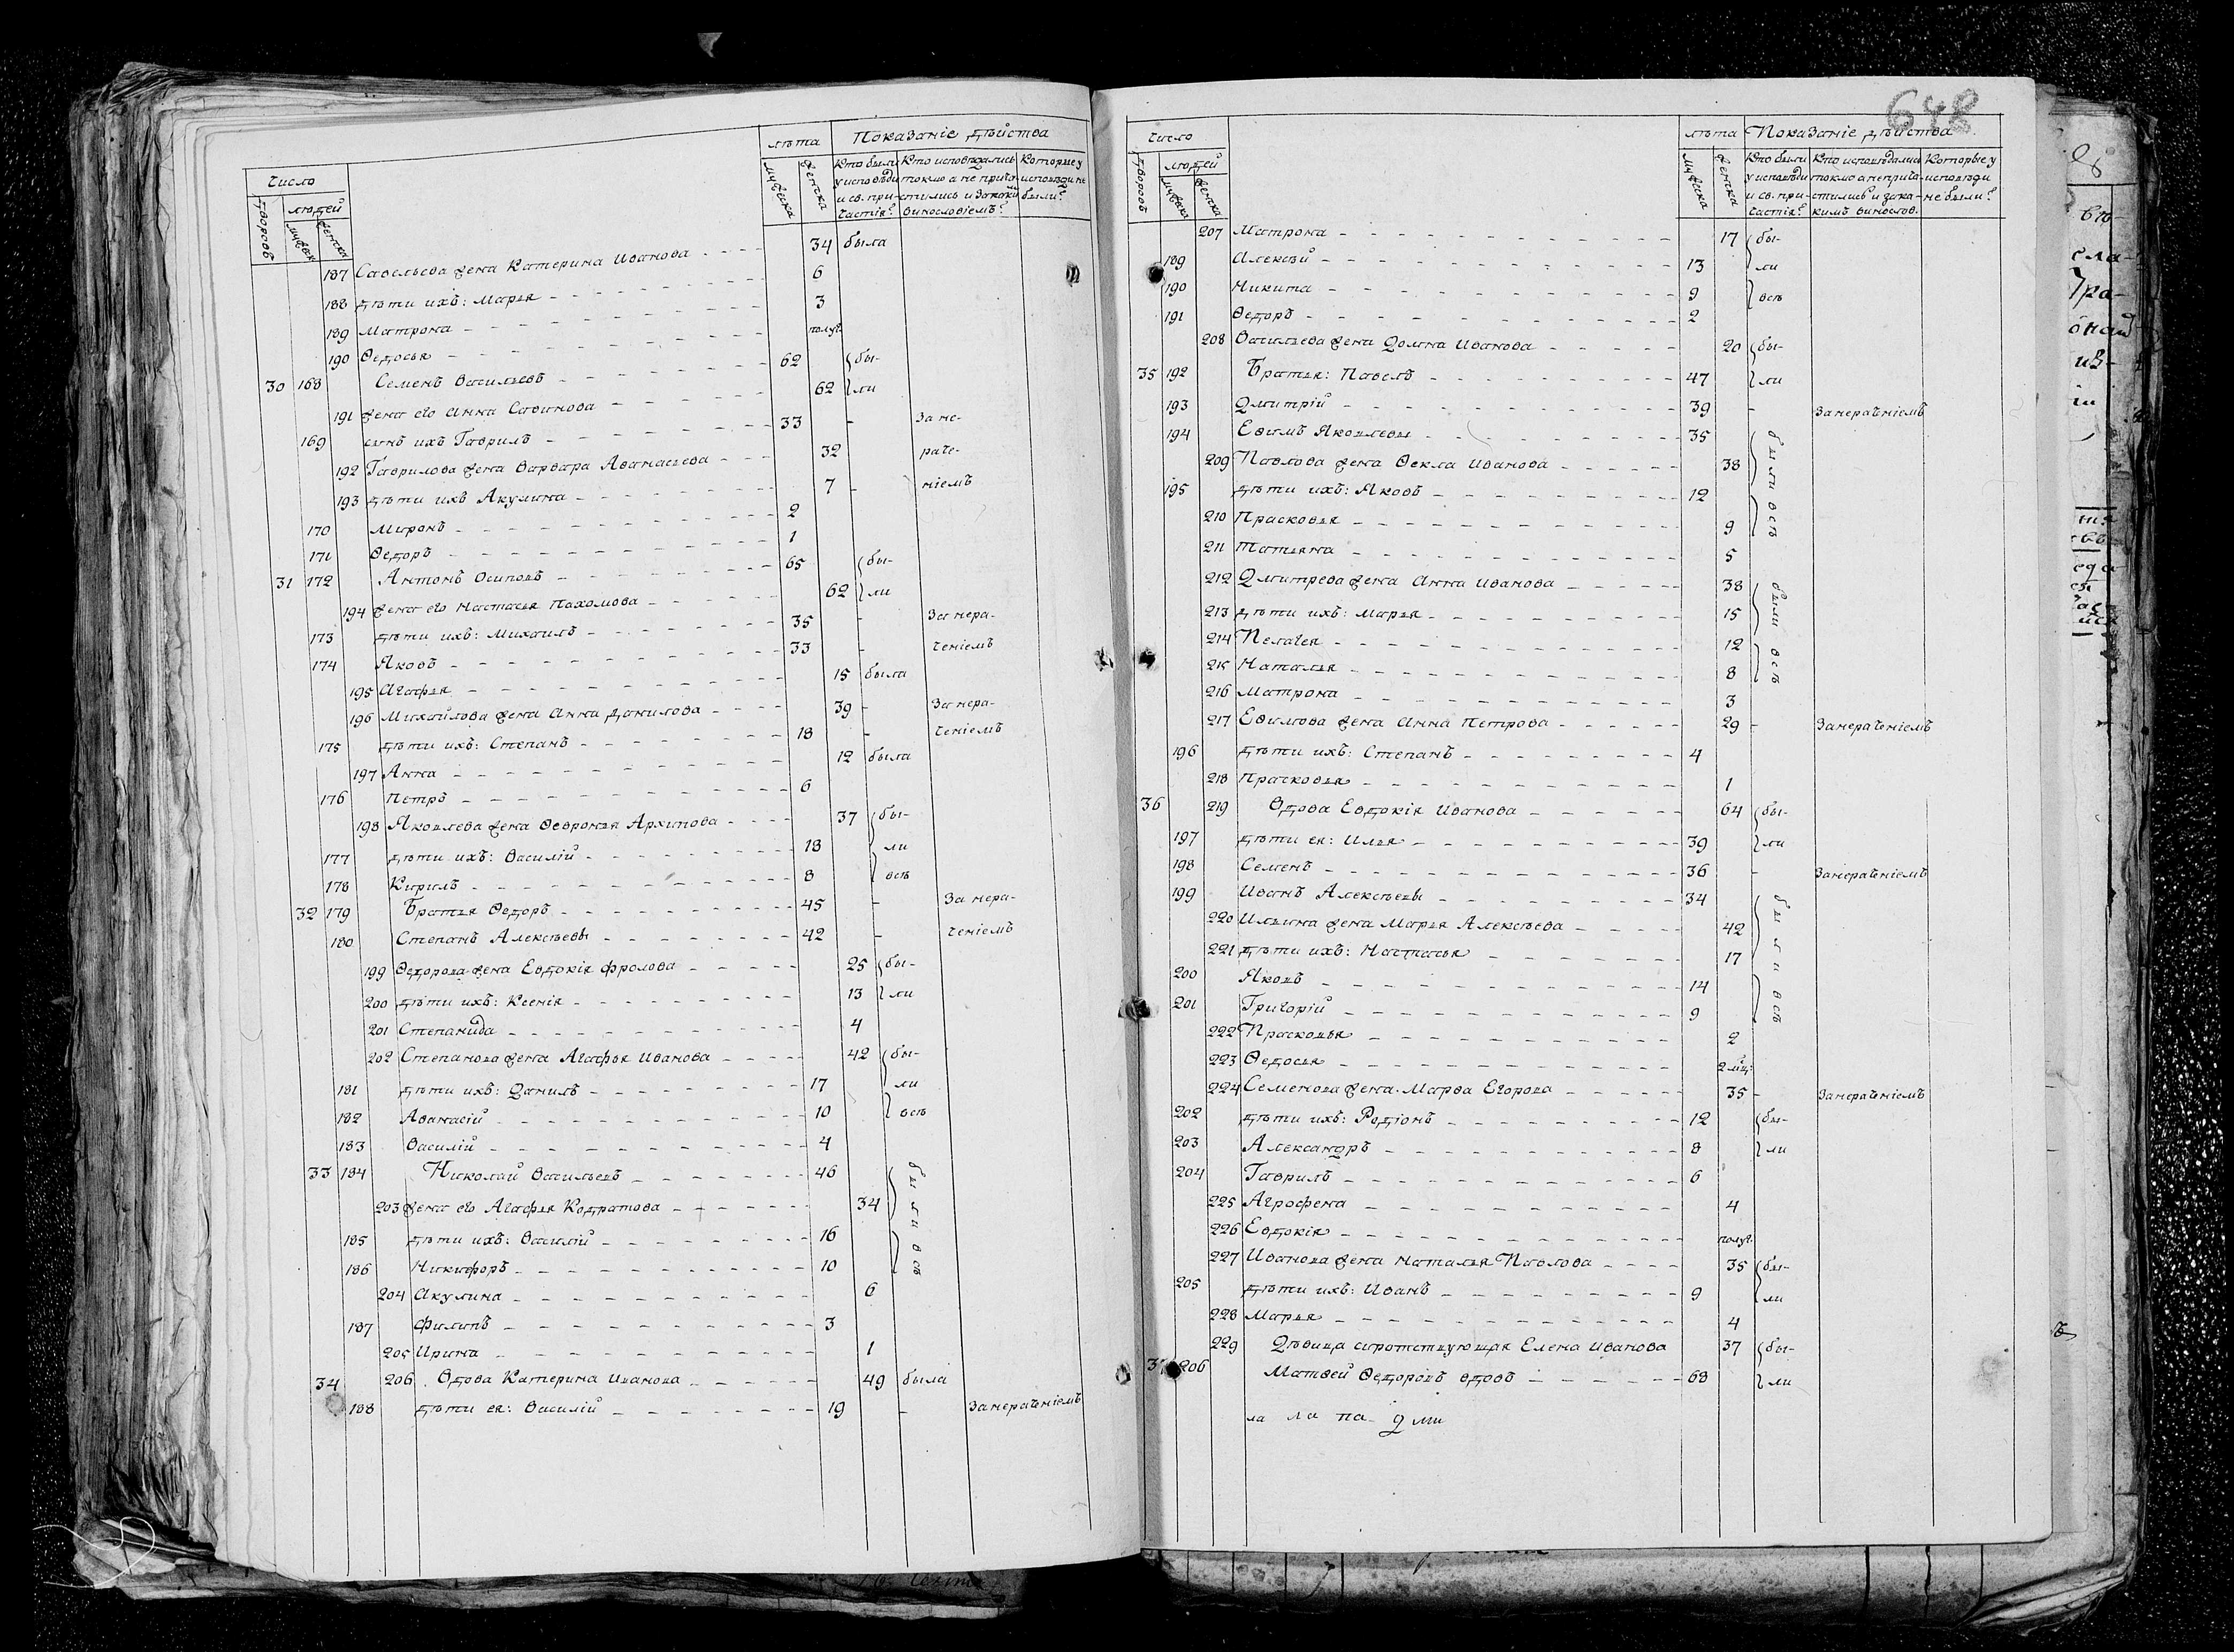 Число
лѣта Показаніе дѣйства
дворовъ
людей
мужеска
женска
мужеска
женска
Кто были у исповѣди и св. причастія?
Кто исповѣдались токмо а не причастились и за каким винословіемъ?
Которые у исповѣди не были?
187 Савельева жена Катерина Иванова 34 была
188 дѣти ихъ: Марья 6
189 Матрона 3
190 Ѳедосья полуг.
30 168 Семенъ Васильевъ 62 бы-
191 жена его Анна Савинова 62 ли
169 сынъ ихъ Гаврилъ 33 - За не-
192 Гаврилова жена Варвара Аѳанасьева 32 раче-
193 дѣти ихъ Акулина 7 - ніемъ
170 Миронъ 2
171 Ѳедоръ 1
31 172 Антонъ Осиповъ 65 бы-
194 жена его Настасья Пахомова 62 ли
173 дѣти ихъ: Михаилъ 35 - За нера-
174 Яковъ 33 - ченіемъ
195 Агафья 15 была
196 Михайлова жена Анна Данилова 39 - За нера-
175 дѣти ихъ: Степанъ 18 - ченіемъ
197 Анна 12 была
176 Петръ 6
198 Яковлева жена Ѳевронья Архипова 37 бы-
177 дѣти ихъ: Василій 18 ли
178 Кирилъ 8 всѣ
32 179 Братья Ѳедоръ 45 - За нера-
180 Степанъ Алексѣевы 42 - ченіемъ
199 Ѳедорова жена Евдокія Фролова 25 бы-
200 дѣти ихъ: Ксенія 13 ли
201 Степанида 4
202 Степанова жена Агафья Иванова 42 бы-
181 дѣти ихъ: Данилъ 17 ли
182 Аѳанасій 10 всѣ
183 Василій 4
33 184 Николай Васильевъ 46 были всѣ
203 жена его Агафья Кодратова 34
185 дѣти ихъ: Василій 16
186 Никифоръ 10
204 Акулина 6
187 Филипъ 3
205 Ирина 1
34 206 Вдова Катерина Иванова 49 была
188 дѣти ея: Василій 19 - За нераченіемъ
648
Число
лѣта Показаніе дѣйства
дворовъ
людей
мужеска
женска
мужеска
женска
Кто были у исповѣди и св. причастія?
Кто исповѣдались токмо а не причастились и за каким винослов.
Которые у исповѣди не были?
207 Матрона 17 бы-
189 Алексѣй 13 ли
190 Никита 9 всѣ
191 Ѳедоръ 2
208 Васильева жена Домна Иванова 20 бы-
35 192 Братья: Павелъ 47 ли
193 Дмитрій 39 - За нераченіемъ
194 Евимъ Яковлевы 35 были всѣ
209 Павлова жена Ѳекла Иванова 38
195 дѣти ихъ: Яковъ 12
210 Прасковья 9
211 Татьяна 5
212 Дмитрева жена Анна Иванова 38 были всѣ
213 дѣти ихъ: Марья 15
214 Пелагея 12
215 Наталья 8
216 Матрона 3
217 Евимова жена Анна Петрова 29 - За нераченіемъ
196 дѣти ихъ: Степанъ 4
218 Прасковья 1
36 219 Вдова Евдокія Иванова 64 бы-
197 дѣти ея: Илья 39 ли
198 Семенъ 36 - За нераченіемъ
199 Иванъ Алексѣевы 34 были всѣ
220 Ильина жена Марья Алексѣева 42
221 дѣти ихъ: Настасья 17
200 Яковъ 14
201 Григорій 9
222 Прасковья 2
223 Ѳедосья 2 мц.
224 Семенова жена Марѳа Егорова 35 - За нераченіемъ
202 дѣти ихъ: Родіонъ 12 бы-
203 Александръ 8 ли
204 Гаврилъ 6
225 Агрофена 4
226 Евдокія полуг.
227 Иванова жена Наталья Павлова 35 бы-
205 дѣти ихъ: Иванъ 9 ли
228 Марья 4
229 Дѣвица сиротствующая Елена Иванова 37 бы-
37 206 Матвей Ѳедоровъ вдовъ 68 ли